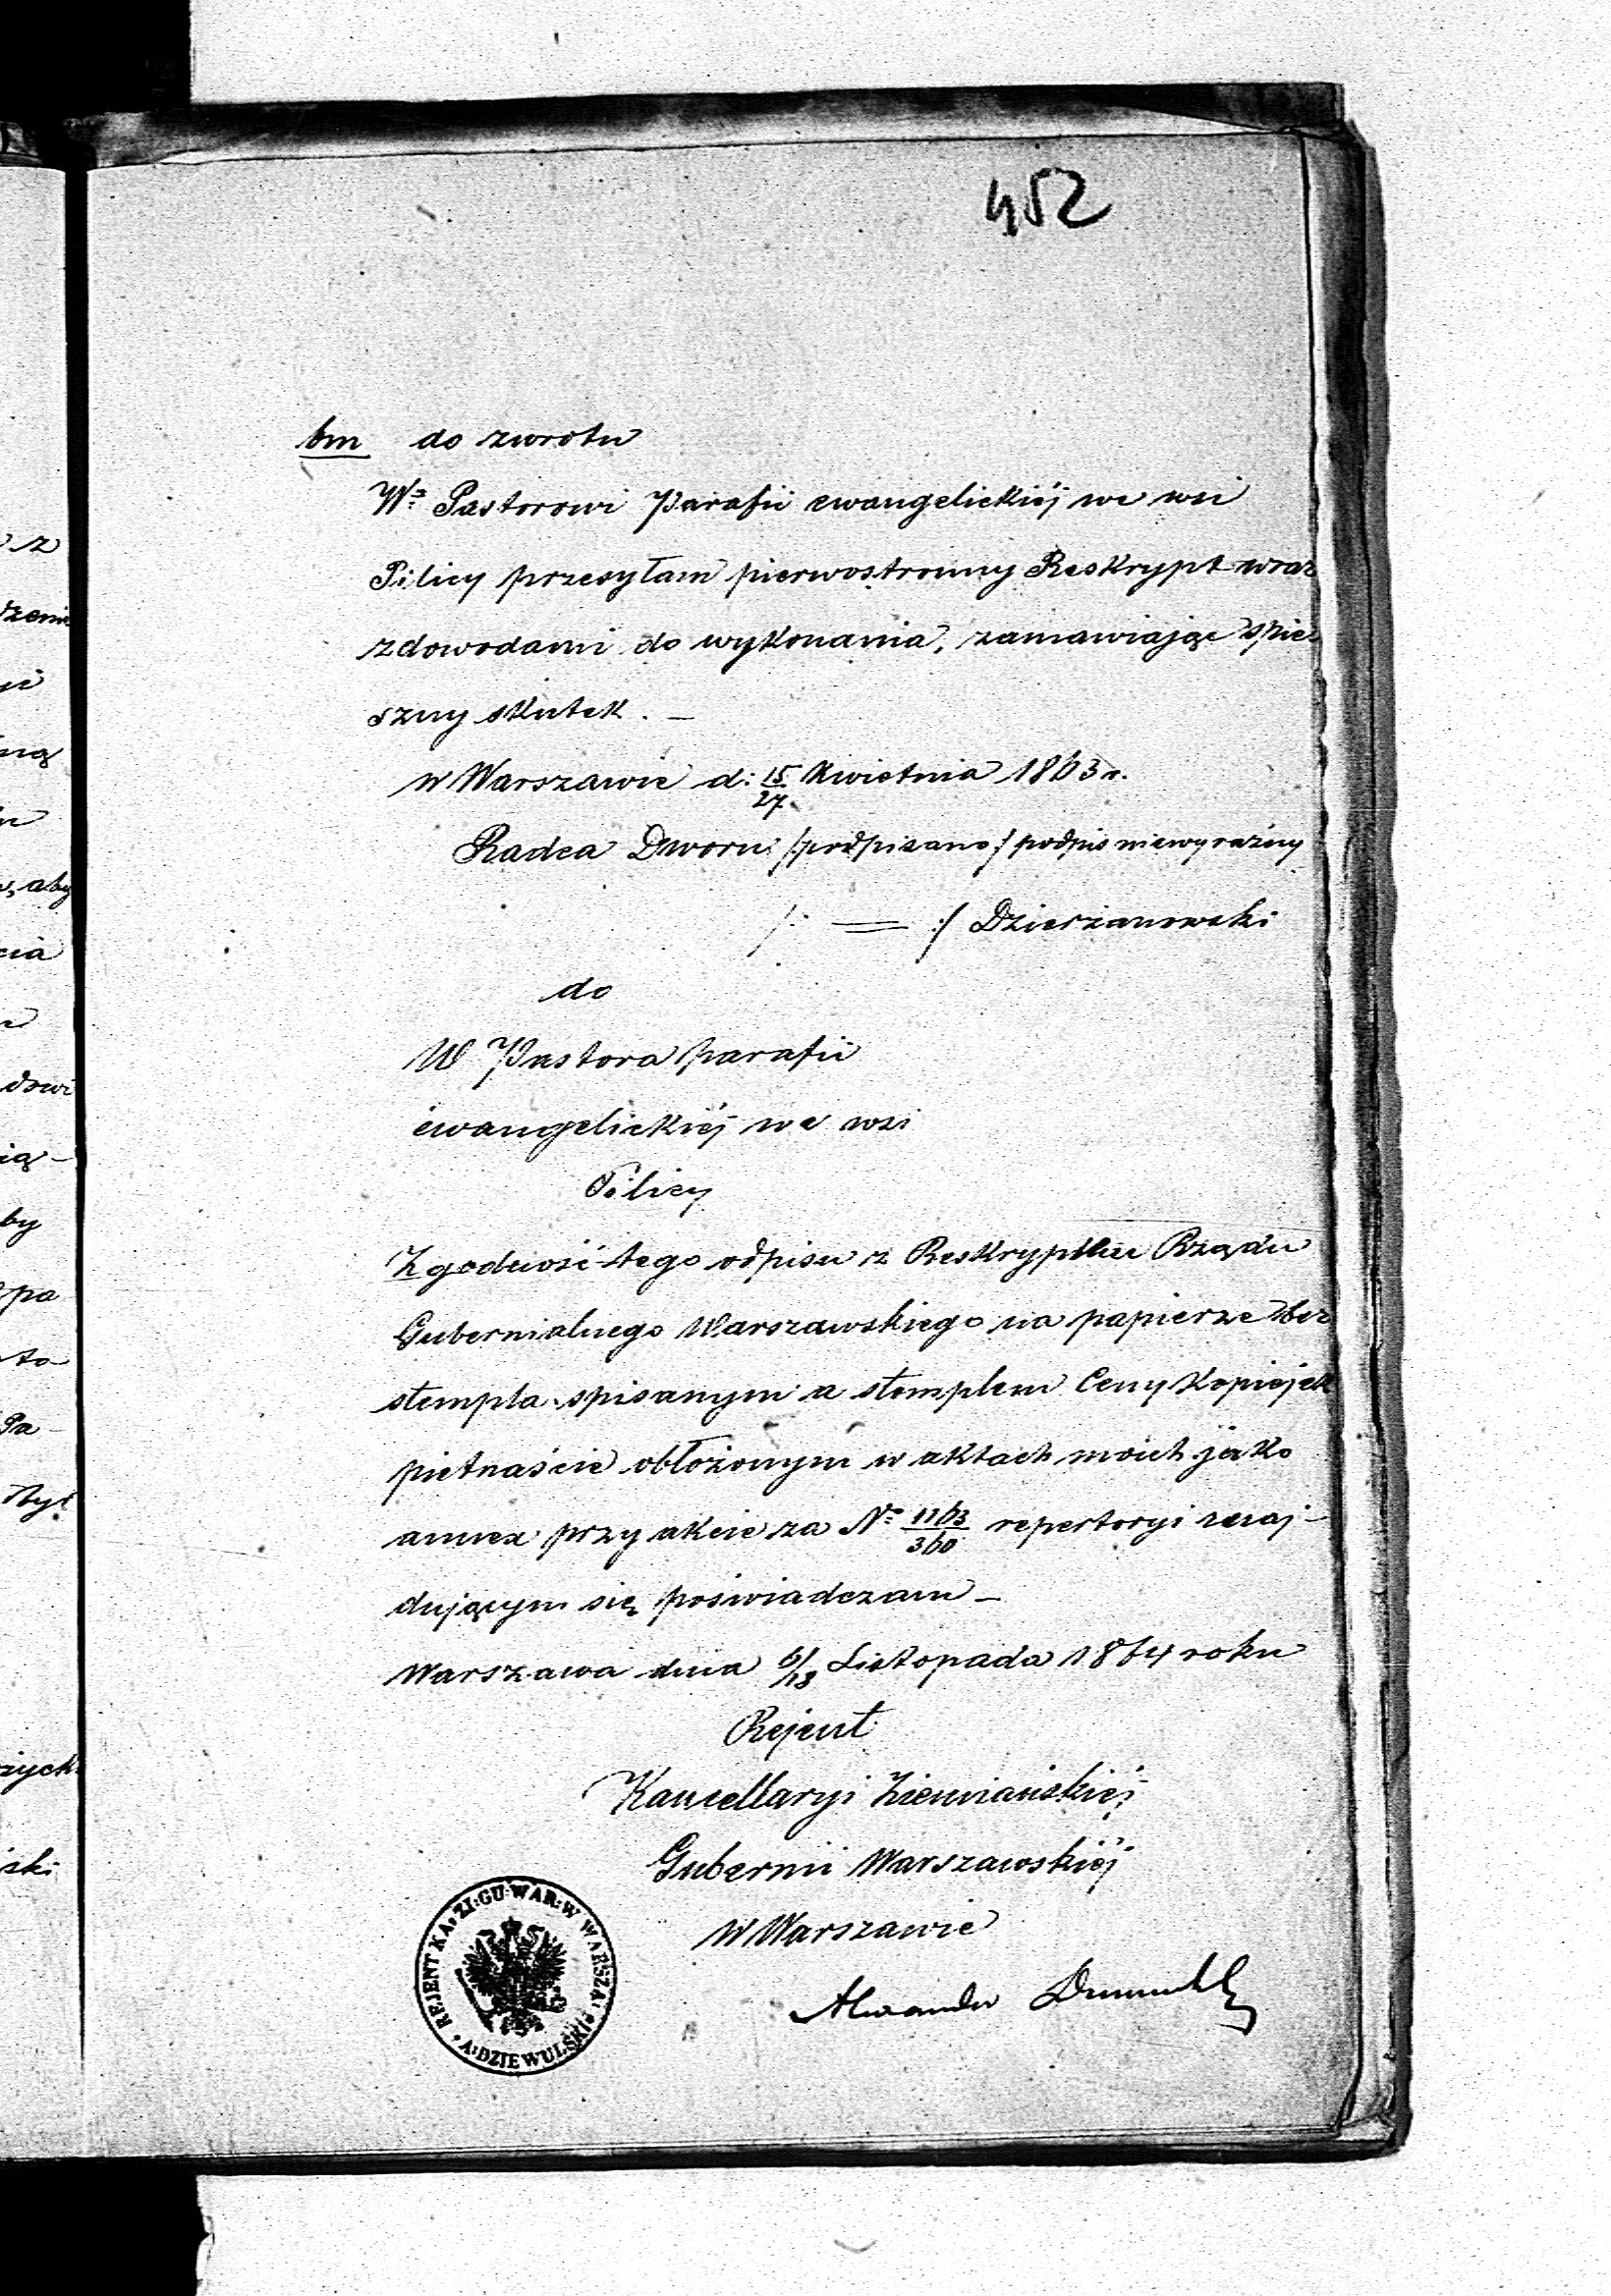 452
bm do zwrotu
Wº Pastorowi Parafii ewangelickiéj we wsi
Pilicy przesyłam pierwostronny Reskrypt wraz
z dowodami do wykonania, zamawiając spie-
szny skutek. —
w Warszawie d: 15/27 Kwietnia 1863 r.
Radca Dworu /:podpisano:/ podpis niewyraźny
/: = :/ Dzierżanowski
do
W Pastora parafii
ewangelickiéj we wsi
Pilicy
Zgodność tego odpisu z Reskryptem Rządu
Gubernialnego Warszawskiego na papierze bez
stempla spisanym a stemplem Ceny Kopiejek
pietnaście obłożonym w aktach moich jako
annex przy akcie za Nº 1163/360 repertoryi znaj-
dującym się poświadczam —
Warszawa dnia 6/18 Listopada 1864 roku
Rejent
Kancellaryi Ziemiańskiéj
Gubernii Warszawskiéj
w Warszawie
Alexander
REJENT KA: ZI: GU: WAR: W WARSZA:
A: DZIEWULSKI